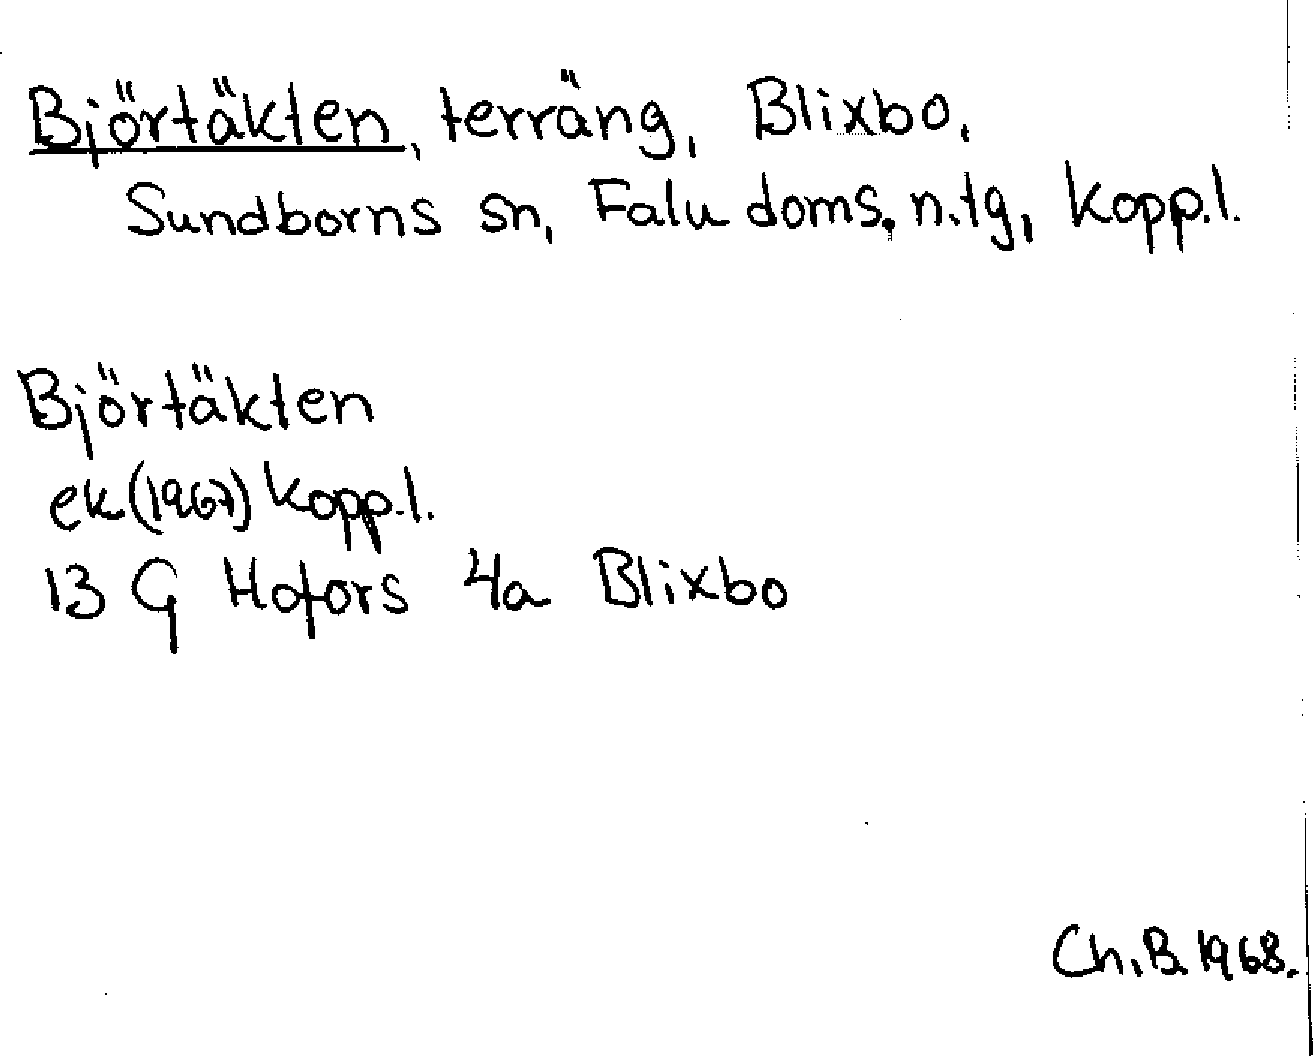 Björtäkten, terräng, Blixbo,
Sundborns sn, Falu doms. n.tg, Kopp.l.
Björtäkten
ek (1967) Kopp.l.
13 G Hofors 4a Blixbo
Ch.B. 1968.